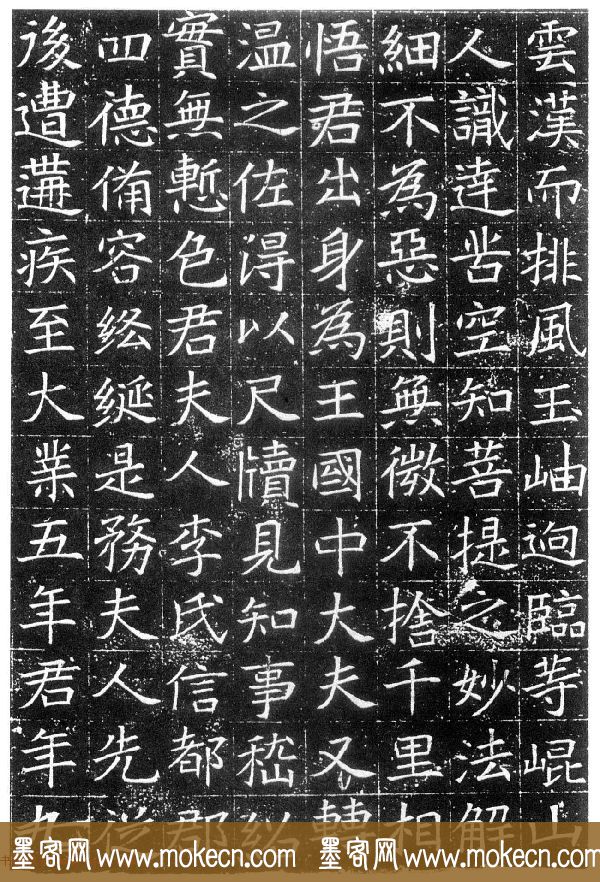 雲漢而排風玉岫迥臨等崐山
人識達苦空知菩提之妙法解
細不為惡則無微不捨千里相
悟君出身為王國中大夫又轉
温之佐得以尺牘見知事嵇紹
實無慙色君夫人李氏信都郡
四德備容紘綖是務夫人先從
後遭遘疾至大業五年君年九
墨客网 www.mokecn.com 墨客网 www.mokecn.com